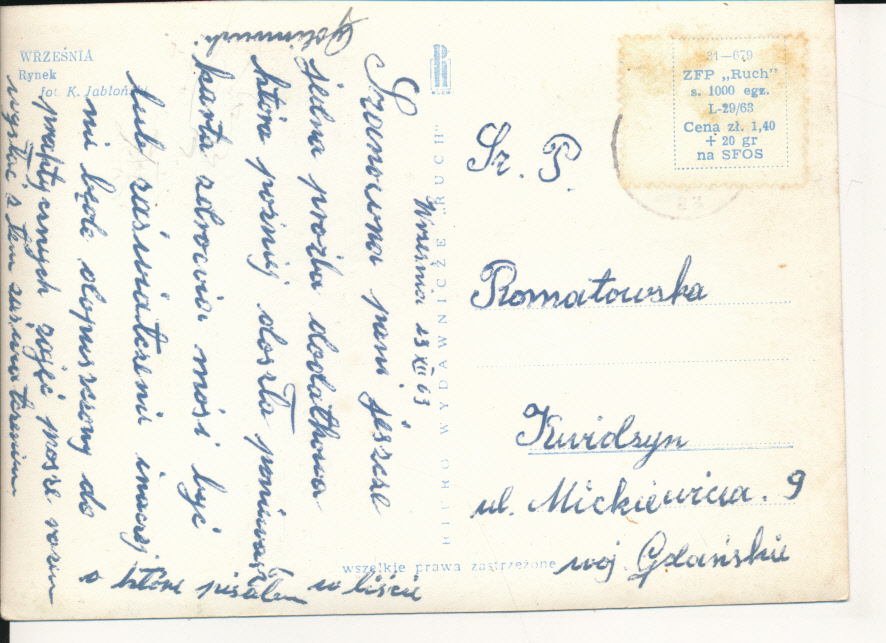 WRZEŚNIA
Rynek
fot. K. Jabłoński
Września 13 XII 63
Szanowna pani jeszcze
jedna prożba dodatkowa
która pożniej doszła poniewasz
karta zdrowia mósi być
lub zaświatczeniu inaczej
ni będe dopuszczony do
praktycznych zajęć mosze razem
wysłać z tem zaświatczeniem
o które pisałem w liście
BIURO WYDAWNICZE „RUCH"
RUCH
wszelkie prawa zastrzeżone
21—679
ZFP „Ruch"
s. 1000 egz.
L-29/63
Cena zł. 1,40
+ 20 gr
na SFOS
Sz. P.
Romatowska
Kwidzyn
ul. Mickiewicza. 9
woj. Gdańskie